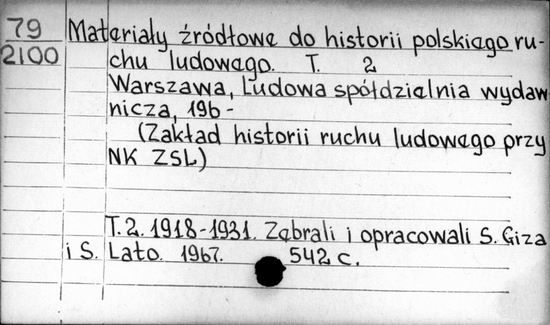 79 Materiały źródłowe do historii polskiego ru-
2100 chu ludowego. T. 2
Warszawa, Ludowa spółdzielnia wydaw
nicza, 196-
(Zakład historii ruchu ludowego przy
NK ZSL)
T. 2. 1918-1931. Zebrali i opracowali S. Giza
i S. Lato. 1967. 542 c.